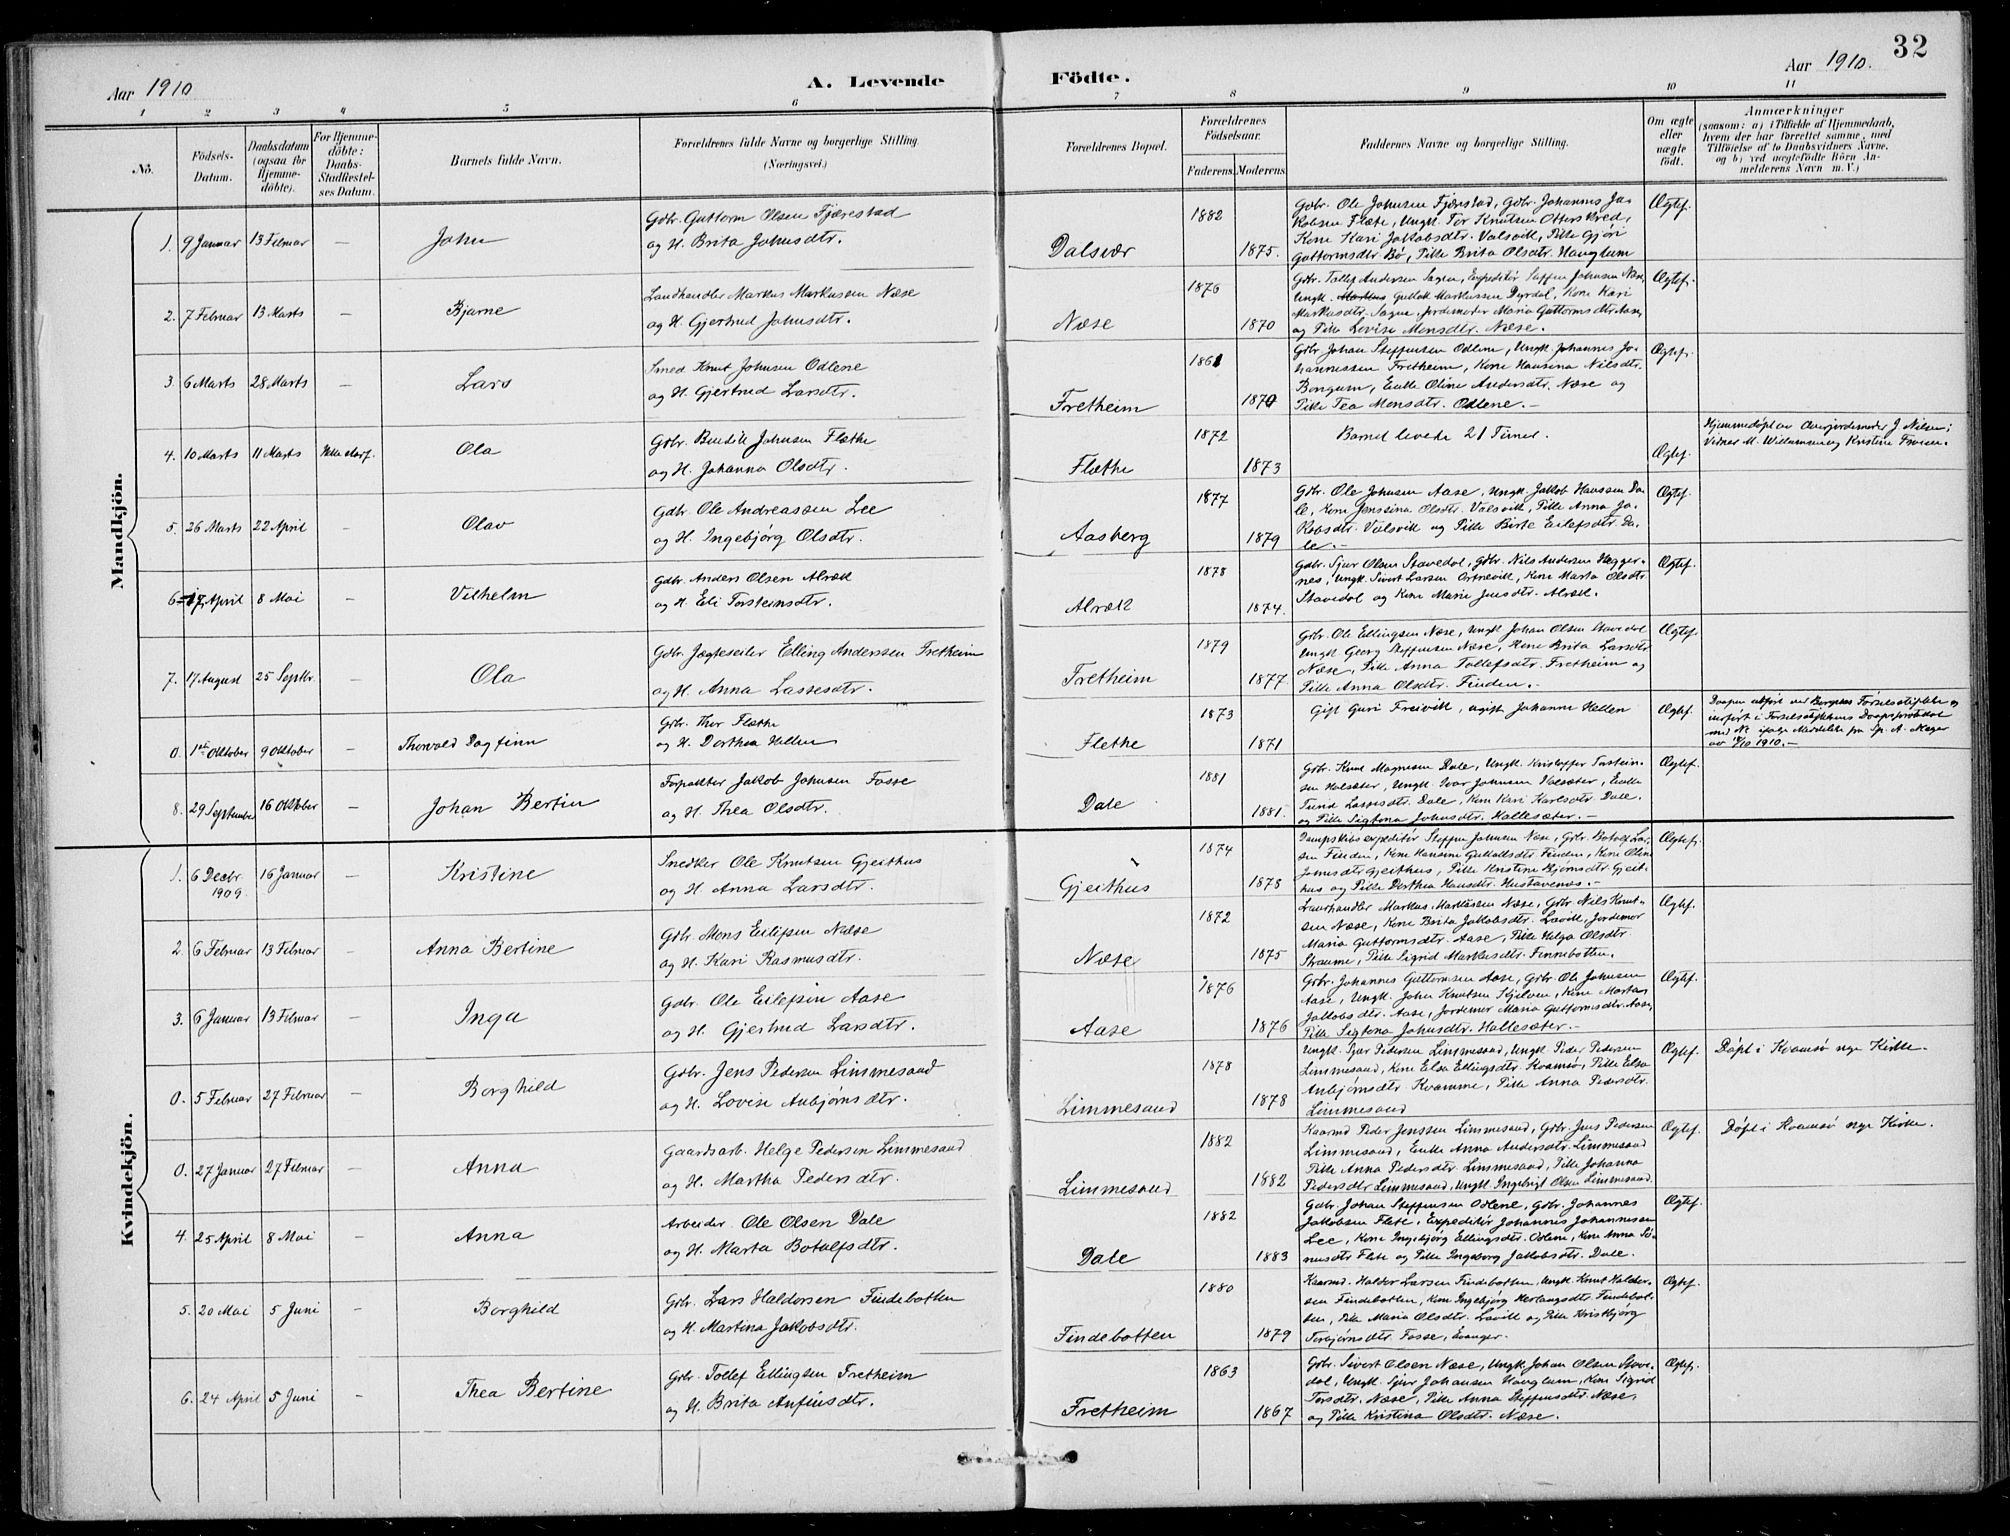 32
Aar 1910
A. Levende Födte.
Aar 1910.
1 2 3 4 5 6 7 8 9 10 11
No.
Födsels-Datum.
Daabsdatum (ogsaa for Hjemme-döbte).
For Hjemme-döbte: Daabs-Stadfæstel-ses Datum.
Barnets fulde Navn.
Forældrenes fulde Navne og borgerlige Stilling (Næringsvei.)
Forældrenes Bopæl.
Forældrenes Födselsaar.
Faderens. Moderens.
Faddernes Navne og borgerlige Stilling.
Om ægte eller uægte födt.
Anmærkninger
(saasom: a) i Tilfælde af Hjemmedaab,
hvem der har forrettet samme, med
Tilföielse af to Daabsvidners Navne,
og b) ved uægtefödte Börn An-
melderens Navn m. V.)
Mandkjön.
1. 9 Januar 13 Februar — John
Gdbr. Guttorm Olsen Fjærestad
og H. Brita Johnsdtr.
Dalsvær 1882 1875.
Gdbr. Ole Johnsen Fjærstad, Gdbr. Johannes Ja-
kobsen Flæte, Ungk. Tor Knutsen Otterskred,
Kone Kari Jakobsdtr. Valsvik, Pike Gjøri
Guttormsdtr Bø, Pike Brita Olsdtr. Hauglum
Ægtef.
2. 7 Februar 13 Marts — Bjarne
Landhandler Markus Markusen Næse
og H. Gjertrud Johnsdtr.
Næse 1876 1870
Gdbr. Tollef Andersen Sagen, Expeditør Steffen Johnsen Næse,
Ungk. Gullak Markussen Dyrdal, Kone Kari
Markusdtr. Sagen, Jordemoder Maria Guttormsdtr Aase,
og Pike Lovise Monsdtr. Næse.
Ægtef.
3. 6 Marts 28 Marts — Lars
Smed Knut Johnsen Odlene
og H. Gjertrud Larsdtr.
Fretheim 1861 1870
Gdbr Johan Steffensen Odlene, Ungk. Johannes Jo-
hannessen Fretheim, Kone Hansina Nilsdtr.
Bongum, Enke Oline Andersdtr. Næse og
Pike Tea Monsdtr. Odlene.—
Ægtef.
4. 10 Marts 11 Marts Ikke stadf. Ola
Gdbr. Bendik Johnsen Flæthe
og H. Johanna Olsdtr.
Flæthe 1872 1873
Barnet levede 21 Timer.
Ægtef.
Hjemmedøpt av Overjordemoder J. Nilsen;
Vidner M. Willumsen og Kristine Iversen.
5. 26 Marts 22 April — Olav
Gdbr. Ole Andreassen Lee
og H. Ingebjørg Olsdtr.
Aasberg 1877 1879
Gdbr. Ole Johnsen Aase, Ungk. Jakob Hanssen Da-
le, Kone Jenssina Olsdtr. Valsvik, Pike Anna Ja-
kobsdtr. Valsvik og Pike Birte Eilefsdtr. Da-
le.—
Ægtef.
6. 17 April 8 Mai — Vilhelm
Gdbr. Anders Olsen Alræk
og H. Eli Torsteinsdtr.
Alræk 1878 1874.
Gdbr. Sjur Olsen Stavedal, Gdbr. Nils Andersen Hegger-
nes, Ungk. Sivert Larsen Ortnevik, Kone Marta Olsdtr
Stavedal og Kone Marie Jensdtr. Alræk.
Ægtef.
7. 17 August 25 Septbr. — Ola
Gdbr. Jægteseiler Elling Anderssen Fretheim
og H. Anna Lassesdtr.
Fretheim 1879 1877
Gdbr. Ole Ellingsen Næse, Ungk Johan Olsen Stavedal
Ungk. Georg Steffensen Næse, Kone Brita Larsdtr
Næse, Pike Anna Tollefsdtr. Fretheim og
Pike Anna Olsdtr. Finden.—
Ægtef.
0. 1ste Oktober 9 Oktober — Thorvald Dagfinn
Gdbr. Thor Flæthe
og H. Dorthea Hellen
Flethe 1873 1871
Gift Guri Freivik, ugift Johanne Hellen
Ægtef.
Daapen utført ved Bergens Fødselsstiftelse og
indført i Fødselsstiftelsens Daapsprotokol
1910.—
8. 29 September 16 Oktober — Johan Bertin
Forpakter Jakob Johnsen Fosse
og H. Thea Olsdtr.
Dale 1881 1881.
Gdbr. Knut Magnesen Dale, Ungk. Kristoffer Torstein-
sen Holsæter, Ungk. Ivar Johnsen Holsæter, Enke
Turid Lassesdtr. Dale, Kone Kari Karlsdtr. Dale.
og Pike Sigtona Johnsdtr. Hallesæter.—
Ægtef.
Kvindekjön.
1. 6 Decbr. 1909. 16 Januar — Kristine
Snedker Ole Knutsen Gjeithus
og H. Anna Larsdtr.
Gjeithus 1874 1878
Dampskibsexpeditør Steffen Johnsen Næse, Gdbr. Botolf Lar-
sen Finden, Kone Hansine Gullaksdtr. Finden, Kone Oline
Jonsdtr Gjeithus, Pike Kristine Bjørnsdtr. Gjeit-
hus og Pike Dorthea Hansdtr. Hustavenæs.—
Ægtef.
2. 6 Februar 13 Februar — Anna Bertine
Gdbr. Mons Eilefsen Næse
og H. Kari Rasmusdtr.
Næse 1872 1875
Landhandler Markus Markussen Næse, Gdbr. Nils Knut-
sen Næse, Kone Brita Jakobsdtr. Lavik, Jordemor
Maria Guttormsdtr. Aase, Pike Helga Olsdtr.
Straume, Pike Sigrid Markusdtr. Finnebotten.
Ægtef.
3. 6 Januar 13 Februar — Inga
Gdbr. Ole Eilefsen Aase
og H. Gjertrud Larsdtr.
Aase 1876 1876
Gdbr. Johannes Guttormsen Aase, Gdbr. Ole Johnsen
Aase, Ungk. John Knutsen Skjelven, Kone Marta
Jakobsdtr. Aase, Jordemor Maria Guttormsdtr. Aase,
Pike Sigtona Johnsdtr. Hallesæter.—
Ægtef.
0. 5 Februar 27 Februar — Borghild
Gdbr. Jens Pedersen Limmesand
og H. Lovise Anbjørnsdtr.
Limmesand 1878 1878
Ungk. Sjur Pedersen Limmesand, Ungk Peder Pedersen
Limmesand, Kone Elsa Ellingsdtr. Kvamsø, Pike Elsa
Anbjørnsdtr Kvamme, Pike Anna Pedersdtr.
Limmesand
Ægtef.
Døpt i Kvamsø nye Kirke.
0. 27 Januar 27 Februar — Anna
Gaardsarb. Helge Pedersen Limmesand
og H. Martha Pedersdtr.
Limmesand 1882 1882
Kaarmd Peder Jenssen Limmesand, Gdbr. Jens Pedersen
Limmesand, Enke Anna Andersdtr. Limmesand
Pike Anna Pedersdtr. Limmesand, Pike Johanna
Pedersdtr Limmesand, Ungk. Ingebrigt Olsen Limmesand.
Ægtef.
Døpt i Kvamsø nye Kirke.
4. 25 April 8 Mai — Anna
Arbeider Ole Olsen Dale
og H. Marta Botolfsdtr.
Dale 1882 1883
Gdbr. Johan Steffensen Odlene, Gdbr. Johannes
Jakobsen Flete, Expeditør Johannes Johannessen
Lee, Kone Ingebjørg Ellingsdtr. Odlene, Kone Anna Si-
monsdtr Flete og Pike Ingeborg Jakobsdtr. Dale.
Ægtef.
5. 20 Mai 5 Juni — Borghild
Gdbr. Lars Haldorsen Findebotten
og H. Martina Jakobsdtr.
Findebotten 1880 1879
Kaarmd. Haldor Larsen Findebotten, Ungk. Knut Haldor-
sen Findebotten, Kone Ingebjørg Herlaugsdtr. Findebot-
ten, Pike Maria Olsdtr. Lavik og Pike Kristbjørg
Torbjørnsdtr. Fosse, Evanger.
Ægtef.
6. 24 April 5 Juni — Thea Bertine
Gdbr. Tollef Ellingsen Fretheim
og H. Brita Anfinsdtr.
Fretheim 1863 1867
Gdbr. Sivert Olsen Næse, Ungk. Johan Olsen Stave-
dal, Ungk. Sjur Johansen Hauglum, Kone Sigrid
Torsdtr. Næse, Pike Anna Steffensdtr. Næse,
og Pike Kristina Olsdtr. Næse.
Ægtef.